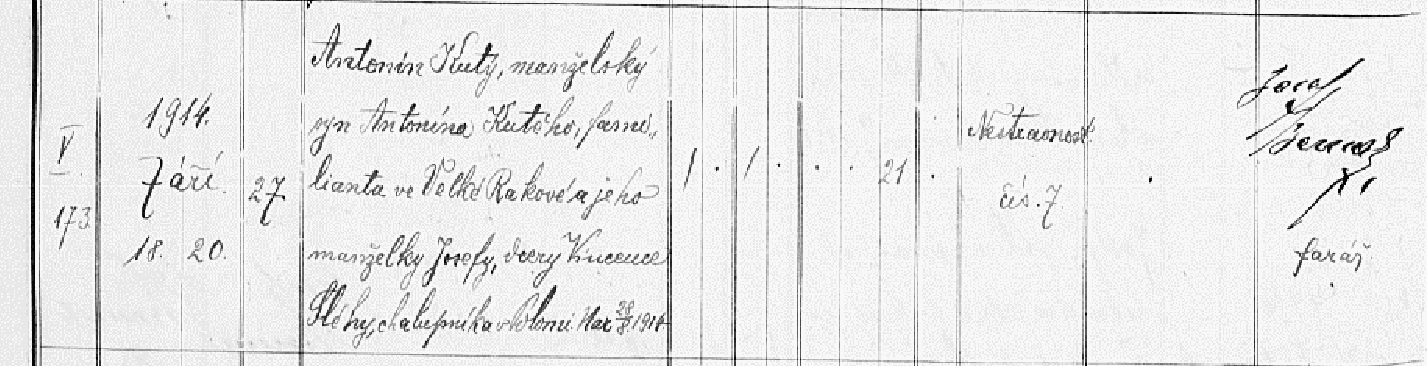 V
173
1914.
Září.
18. 20.
27.
Antonín Kutý, manželský
syn Antonína Kutého, fami„
lianta ve Velké Rakové a jeho
manželky Josefy, dcery Vincence
chalupníka v Nar 28/8 1914
1 . 1 . . . 21 .
Nestravnost.
čís. 7
.
Josef
farář.